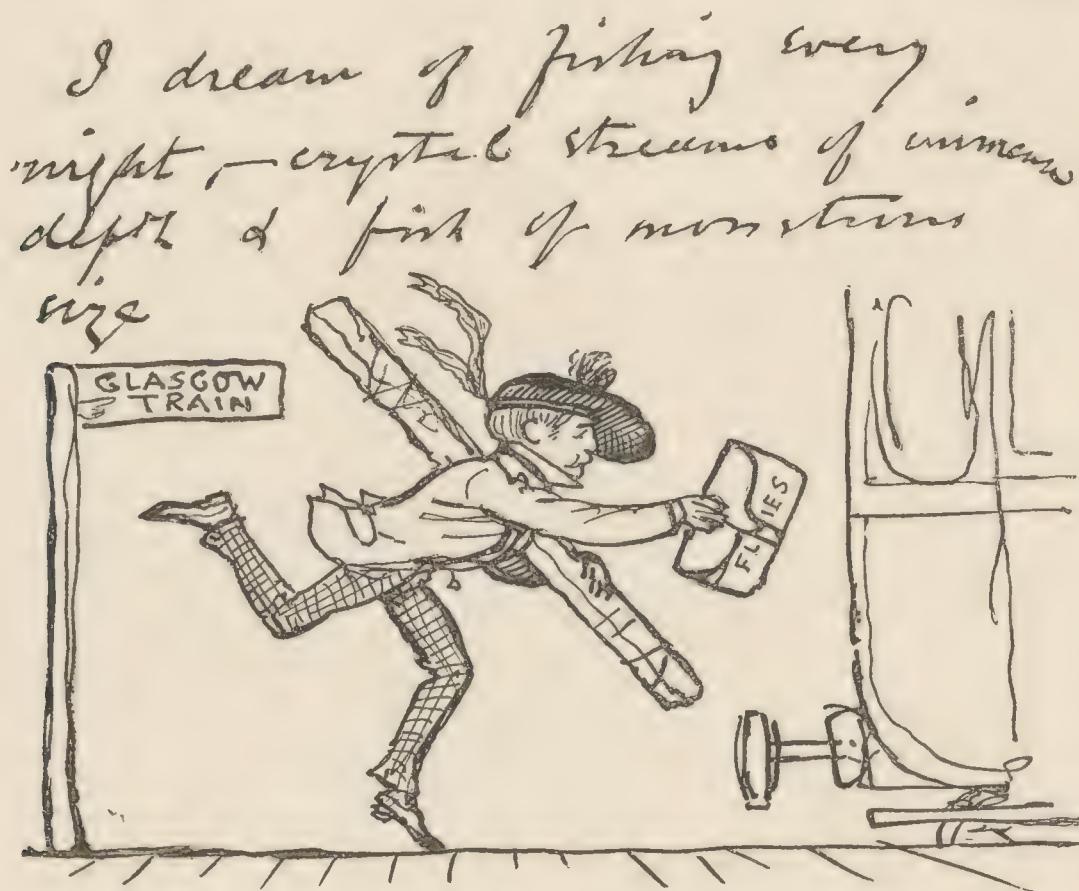 I dream of fishing every
night, – crystal streams of immense
depth & fish of monstrous
size
GLASGOW
TRAIN
FLIES